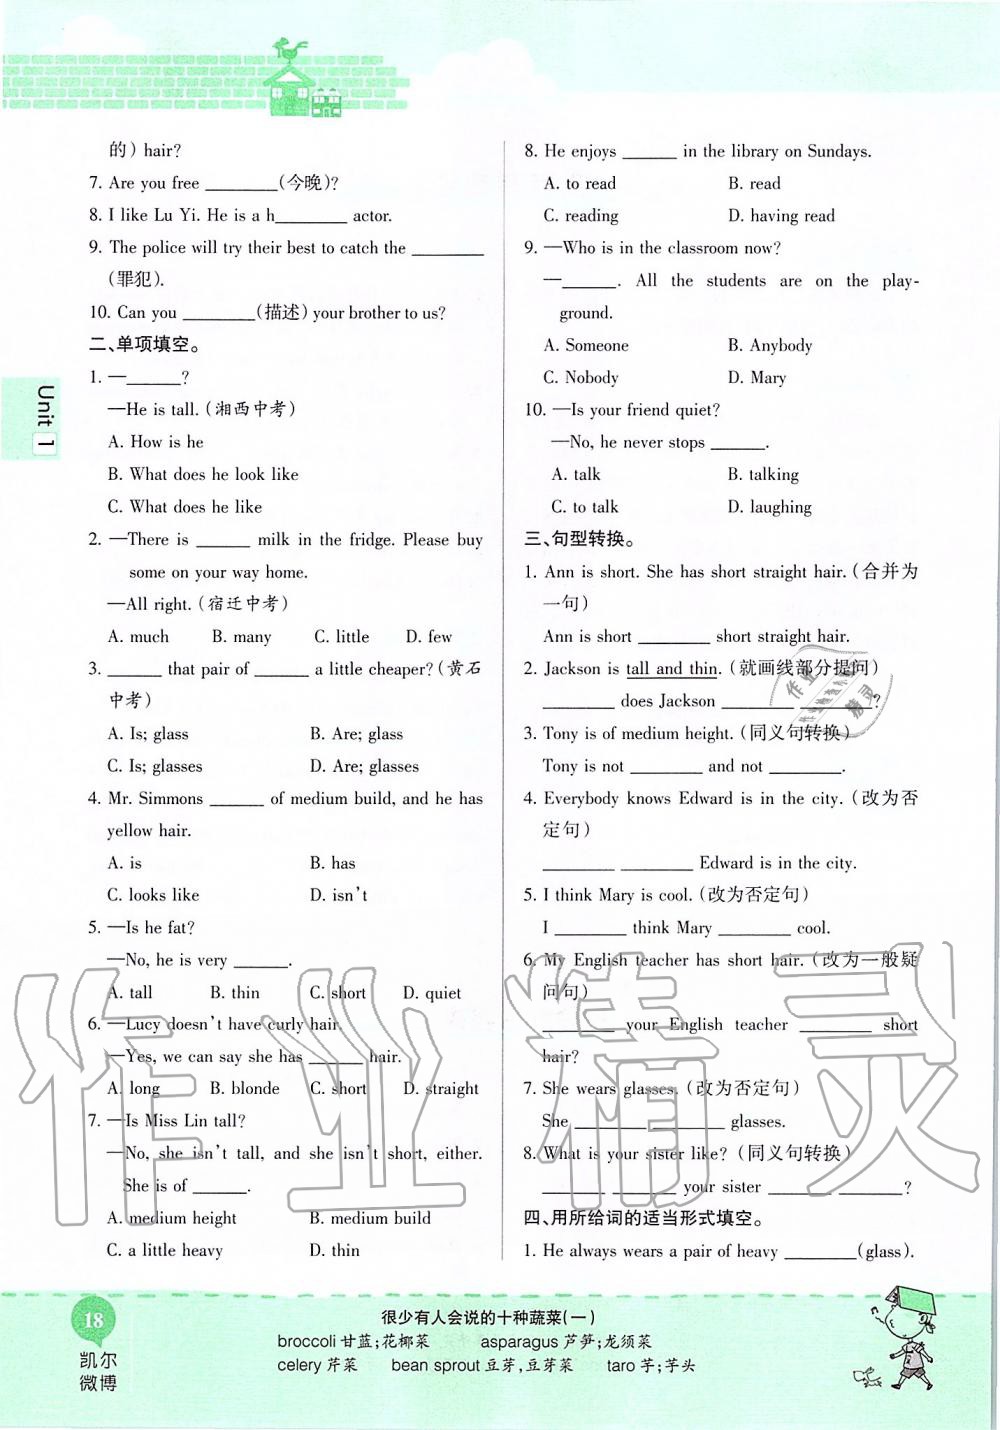 的) hair?
7. Are you free ________(今晚)?
8. I like Lu Yi. He is a h________ actor.
9. The police will try their best to catch the ________
(罪犯).
10. Can you ________(描述) your brother to us?
二、单项填空。
1. —______?
—He is tall. (湘西中考)
A. How is he
B. What does he look like
C. What does he like
2. —There is ______ milk in the fridge. Please buy
some on your way home.
—All right. (宿迁中考)
A. much B. many C. little D. few
3. ______ that pair of ______ a little cheaper? (黄石
中考)
A. Is; glass B. Are; glass
C. Is; glasses D. Are; glasses
4. Mr. Simmons ______ of medium build, and he has
yellow hair.
A. is B. has
C. looks like D. isn't
5. —Is he fat?
—No, he is very ______.
A. tall B. thin C. short D. quiet
6. —Lucy doesn't have curly hair.
—Yes, we can say she has ______ hair.
A. long B. blonde C. short D. straight
7. —Is Miss Lin tall?
—No, she isn't tall, and she isn't short, either.
She is of ______.
A. medium height B. medium build
C. a little heavy D. thin
8. He enjoys ______ in the library on Sundays.
A. to read B. read
C. reading D. having read
9. —Who is in the classroom now?
—______. All the students are on the play-
ground.
A. Someone B. Anybody
C. Nobody D. Mary
10. —Is your friend quiet?
—No, he never stops ______.
A. talk B. talking
C. to talk D. laughing
三、句型转换。
1. Ann is short. She has short straight hair. (合并为
一句)
Ann is short ________ short straight hair.
2. Jackson is tall and thin. (就画线部分提问)
________ does Jackson ________ ________?
3. Tony is of medium height. (同义句转换)
Tony is not ________ and not ________.
4. Everybody knows Edward is in the city. (改为否
定句)
________ ________ Edward is in the city.
5. I think Mary is cool. (改为否定句)
I ________ think Mary ________ cool.
6. My English teacher has short hair. (改为一般疑
问句)
________ your English teacher ________ short
hair?
7. She wears glasses. (改为否定句)
She ________ ________ glasses.
8. What is your sister like? (同义句转换)
_______ _______ your sister _______ _______?
四、用所给词的适当形式填空。
1. He always wears a pair of heavy ________(glass).
Unit 1
作业精灵
作业
精灵
18
凯尔
微博
很少有人会说的十种蔬菜(一)
broccoli 甘蓝;花椰菜 asparagus 芦笋;龙须菜
celery 芹菜 bean sprout 豆芽,豆芽菜 taro 芋;芋头